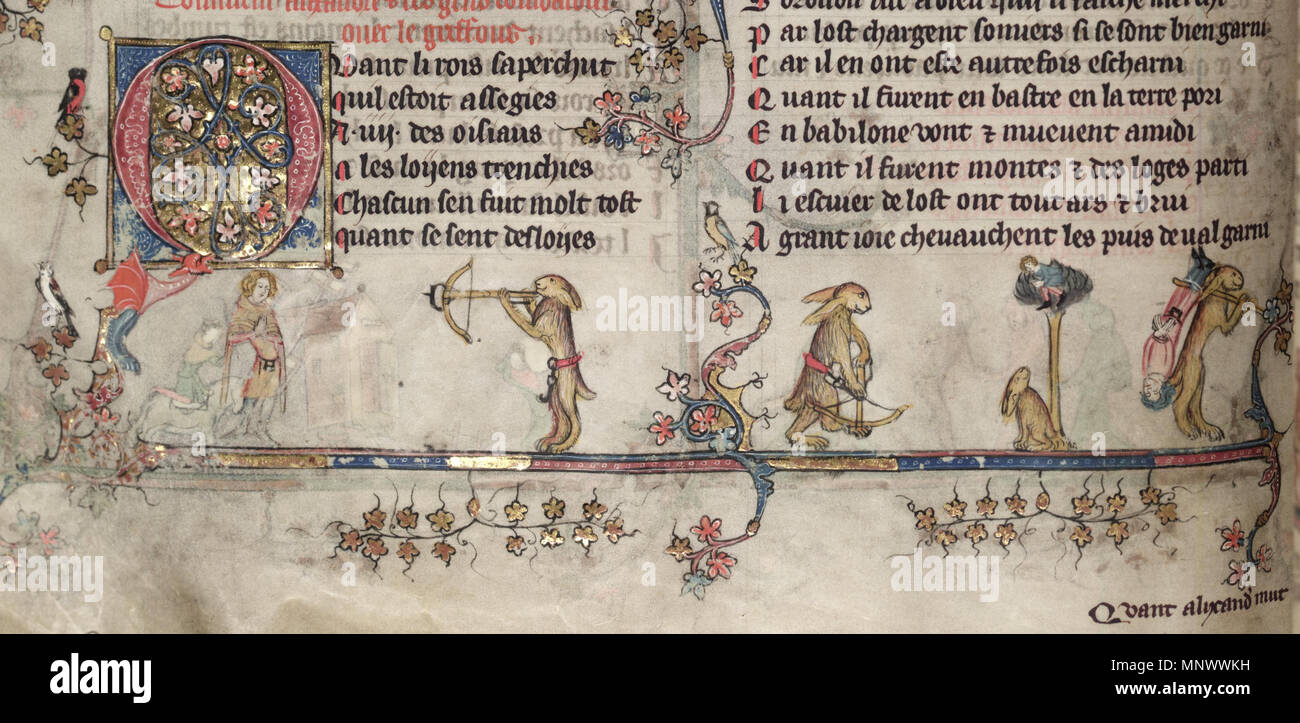 Comment alixandre & les gens
ouer le griffous
Quant li rois saperchut
quil estoit assegies
A ·iiij· des oisiaus
a les loijens trenchies
Chascun sen fuit molt tost
quant se sent desloijes
P ar lost chargent sonuers si se sont bien garni
C ar il en ont este autrefois escharni
Q uant il furent en bastre en la terre pori
E n babilone vont & mueuent amidi
Q uant il furent montes & des loges parti
L i escuier de lost ont tout ars & brui
A grant ioie cheuauchent les puis de ual garni
Quant alixand' mut
a alamy stock photo
alamy
Image ID: MNWWKH
www.alamy.com